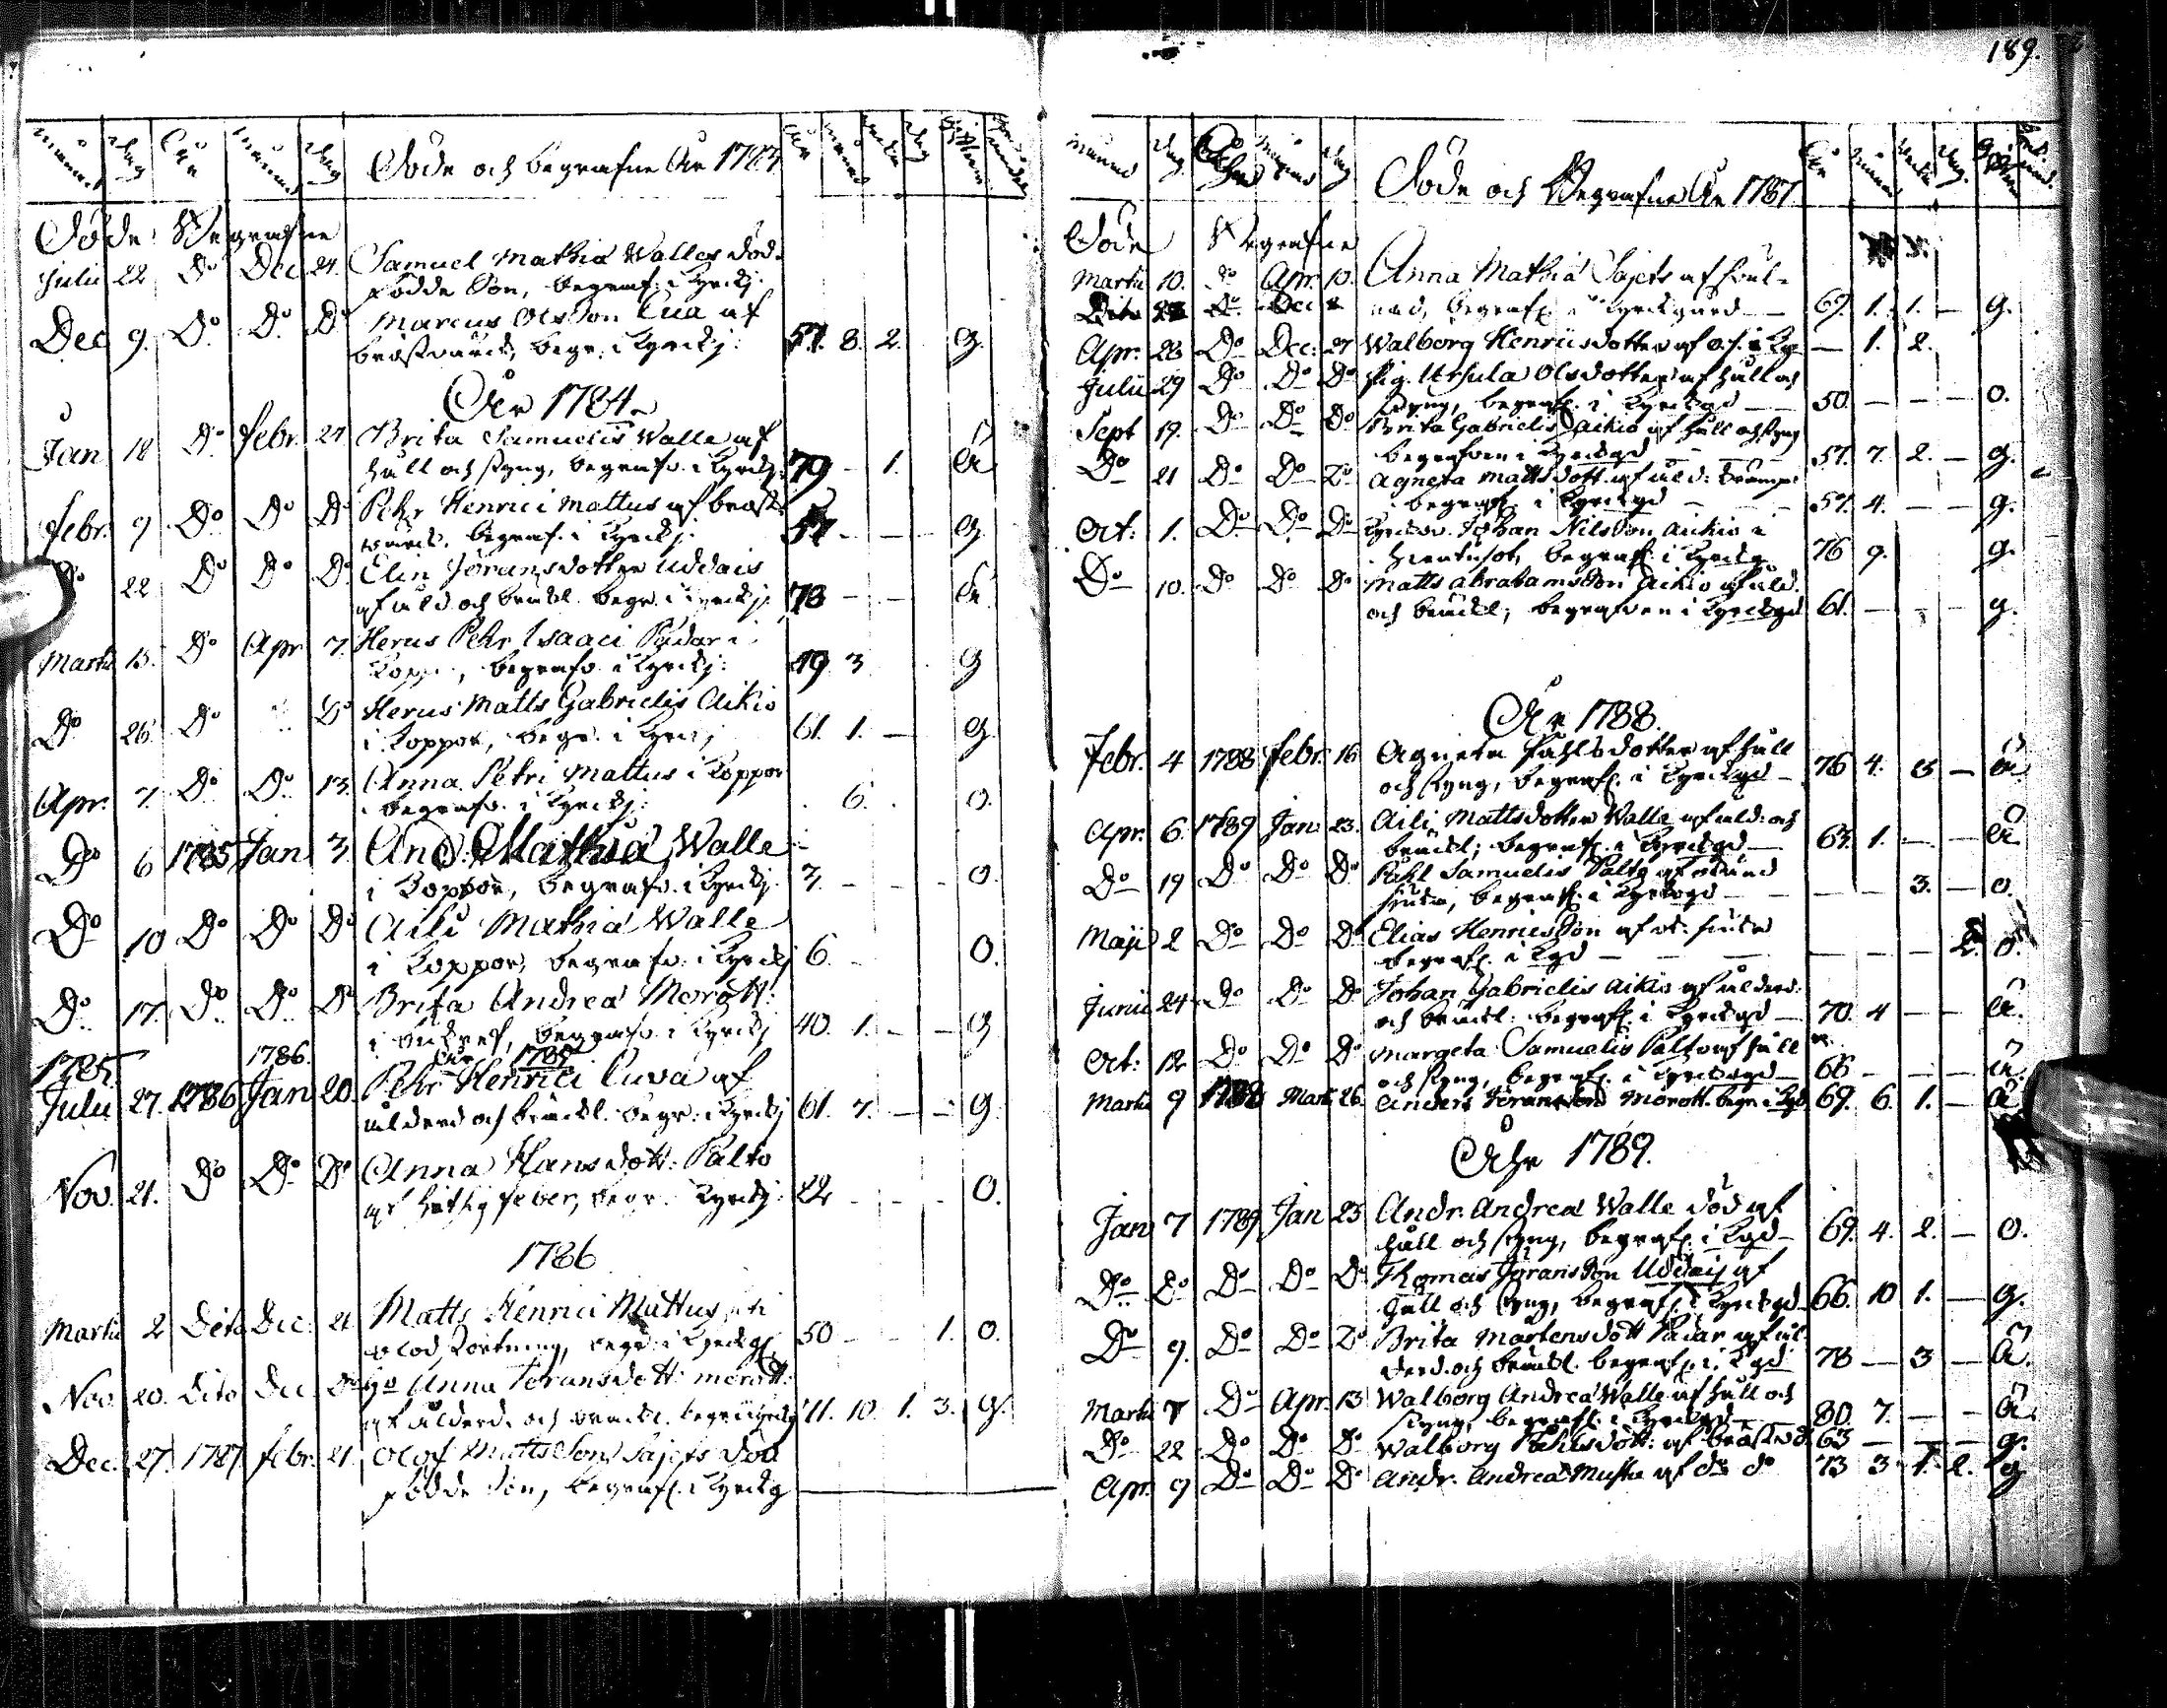 189.
månad dag Åhr månad dag Döde och begrafne År 1783 År månad dag
Döde Begrafne
Julii 22 Do Dec 24. Samuel Mathiæ Walles död-
födde Son, begraf: i Kyrckj.
Dec 9. Do Do Do Marcus Olsson Cua af
bröstvärck, begr. i Kyrckj: 57. 8. 2. g.
År 1784.
Jan 18 Do febr. 24 Brita Samuelis Walle af
håll och styng, begrafv. i Kyrckj: 79 - 1. Ä
febr. 9 Do Do Do Pehr Henrici Mattus af bröst-
wärck, begraf. i Kyrckj. 57 - - - g.
Do 22 Do Do Do Elin Joransdotter Uddais
af ålder och bräckl. begr. i Kyrckj. 73 - - Ä.
Martii 15. Do Apr 7. Herus Pehr Isaaci Padar i
Koppor, begrafv. i Kyrckj: 49 3 g
Do 26. Do Do Herus Matts Gabrielis Aikio
i Koppor, begr. i Kyrckj 61. 1. - g.
Apr. 7. Do Do 13. Anna Petri Mattus i Koppor
begrafv. i Kyrckj: 6. O.
Do 6 1785 Jan 3 And. Mathiæ Walle
i Koppor, begrafv. i Kyrckj. 3. - - - O.
Do 10 Do Do Do Aili Mathiæ Walle
i Koppor, begrafv. i Kyrckj 6. - O.
Do 17. Do Do Do Brita Andreæ Morott:
i begrafv. i Kyrckj 40. 1. - - g
1785 1786. År 1785
Julii 27. 1786 Jan 20. Pehr Henrici Cuva af
ålderd och bräckl. begr. i Kyrckj 61. 7. - - g.
Nov. 21. Do Do Do Anna Hansdott: Palto
af hitsig feber, begr. Kyrckj: 22 - - - O.
1786
Martii 2 Dito Dec: 21 Matts Henrici Mattus
blodstörtning, begr. i Kyrckg. 50 - - 1. O.
Nov. 20. Dito Dec Do Anna Joransdott: morott:
af ålderd. och bräckl. begr. i Kyrckg 71. 10. 1. 3. g.
Dec. 27. 1787 febr. 21. Olof Matts Son Sajets död
födde Son, begraf. i Kyrckg
månad dag Åhr månad dag Döde och Begrafne År 1787. År månad dag.
Döde Begrafne
Martii 10. Do Apr. 10. Anna Mathiæ Sajets af
begraf. i Kyrckgård - 69. 1. 1. - g.
Apr. 28 Do Dec: 27 Walborg Henricsdotter af i Kg - 1. 2.
Julii 29 Do Do Do Pig. Ursula Olsdotter af håll och
styng, begraf. i Kyrckgd - 50. - - - O.
Sept 19. Do Do Do Brita Gabrielis Aikio af håll och styng
begrafven i Kyrckgd - 57. 7. 2. - g.
Do 21 Do Do Do Agneta Mattsdott. af
begraf. i Kyrckgd - 57. 4. - - g.
Oct: 1. Do Do Do Johan Nilsson Aikio i
begraf. i Kyrckg. 76 9. g.
Do 10. Do Do Do Matts Abrahamsson Aikio af åld.
och bräckl; begrafven i Kyrckgd 61. - - - g.
År 1788.
Febr. 4 1788 febr. 16 Agneta Påhlsdotter af håll
och styng, begraf. i Kyrckgd - 76 4. 3 - Ä
Apr. 6. 1789 Jan 23. Aili Mattsdotter Walle af åld: och
bräckl; begraf. i Kyrckgd - 63. 1. - - Ä.
Do 19 Do Do Do Påhl Samuelis Palto af
siuka, begraf. i Kyrckogd - - 3. - O.
Maji 2 Do Do Do Elias Henricsson af siuka
begraf. i Kgd - - - - 2. O.
Junii 24 Do Do Do Johan Gabrielis Aikio af ålderd.
och bräckl: begraf. i Kyrckgd - 70. 4 - - Ä.
Oct: 12 Do Do Do Margeta Samuelis Palto af håll
och styng, begraf. i Kyrckogd - 66 - - - Ä.
Martii 9 1788 Mart 26. Anders Joransson Morott. begr. i Kgd 69. 6. 1. - Ä
Åhr 1789.
Jan 7 1789 Jan 23 Andr. Andreæ Walle död af
håll och styng, begraf. i Kgd - 69. 4. 2. - O.
Do Do Do Do Do Thomas Joransson Uddaij af
håll och styng, begraf. i Kyrckgd 66. 10 1. - g.
Do 9. Do Do Do Brita Mårtensdott Padar af ål-
derd. och bräckl. begraf. i Kgd 78 - 3 - Ä.
Martii 7 Do Apr. 13 Walborg Andreæ Walle af håll och
styng, begraf. i Kyrckgd - 80. 7. - - Ä.
Do 22 Do Do Do Walborg Påhlsdott: af bröstvd. 63 - - - g.
Apr. 9 Do Do Do Andr. Andreæ Musta af do do 73 3 1. 2. g